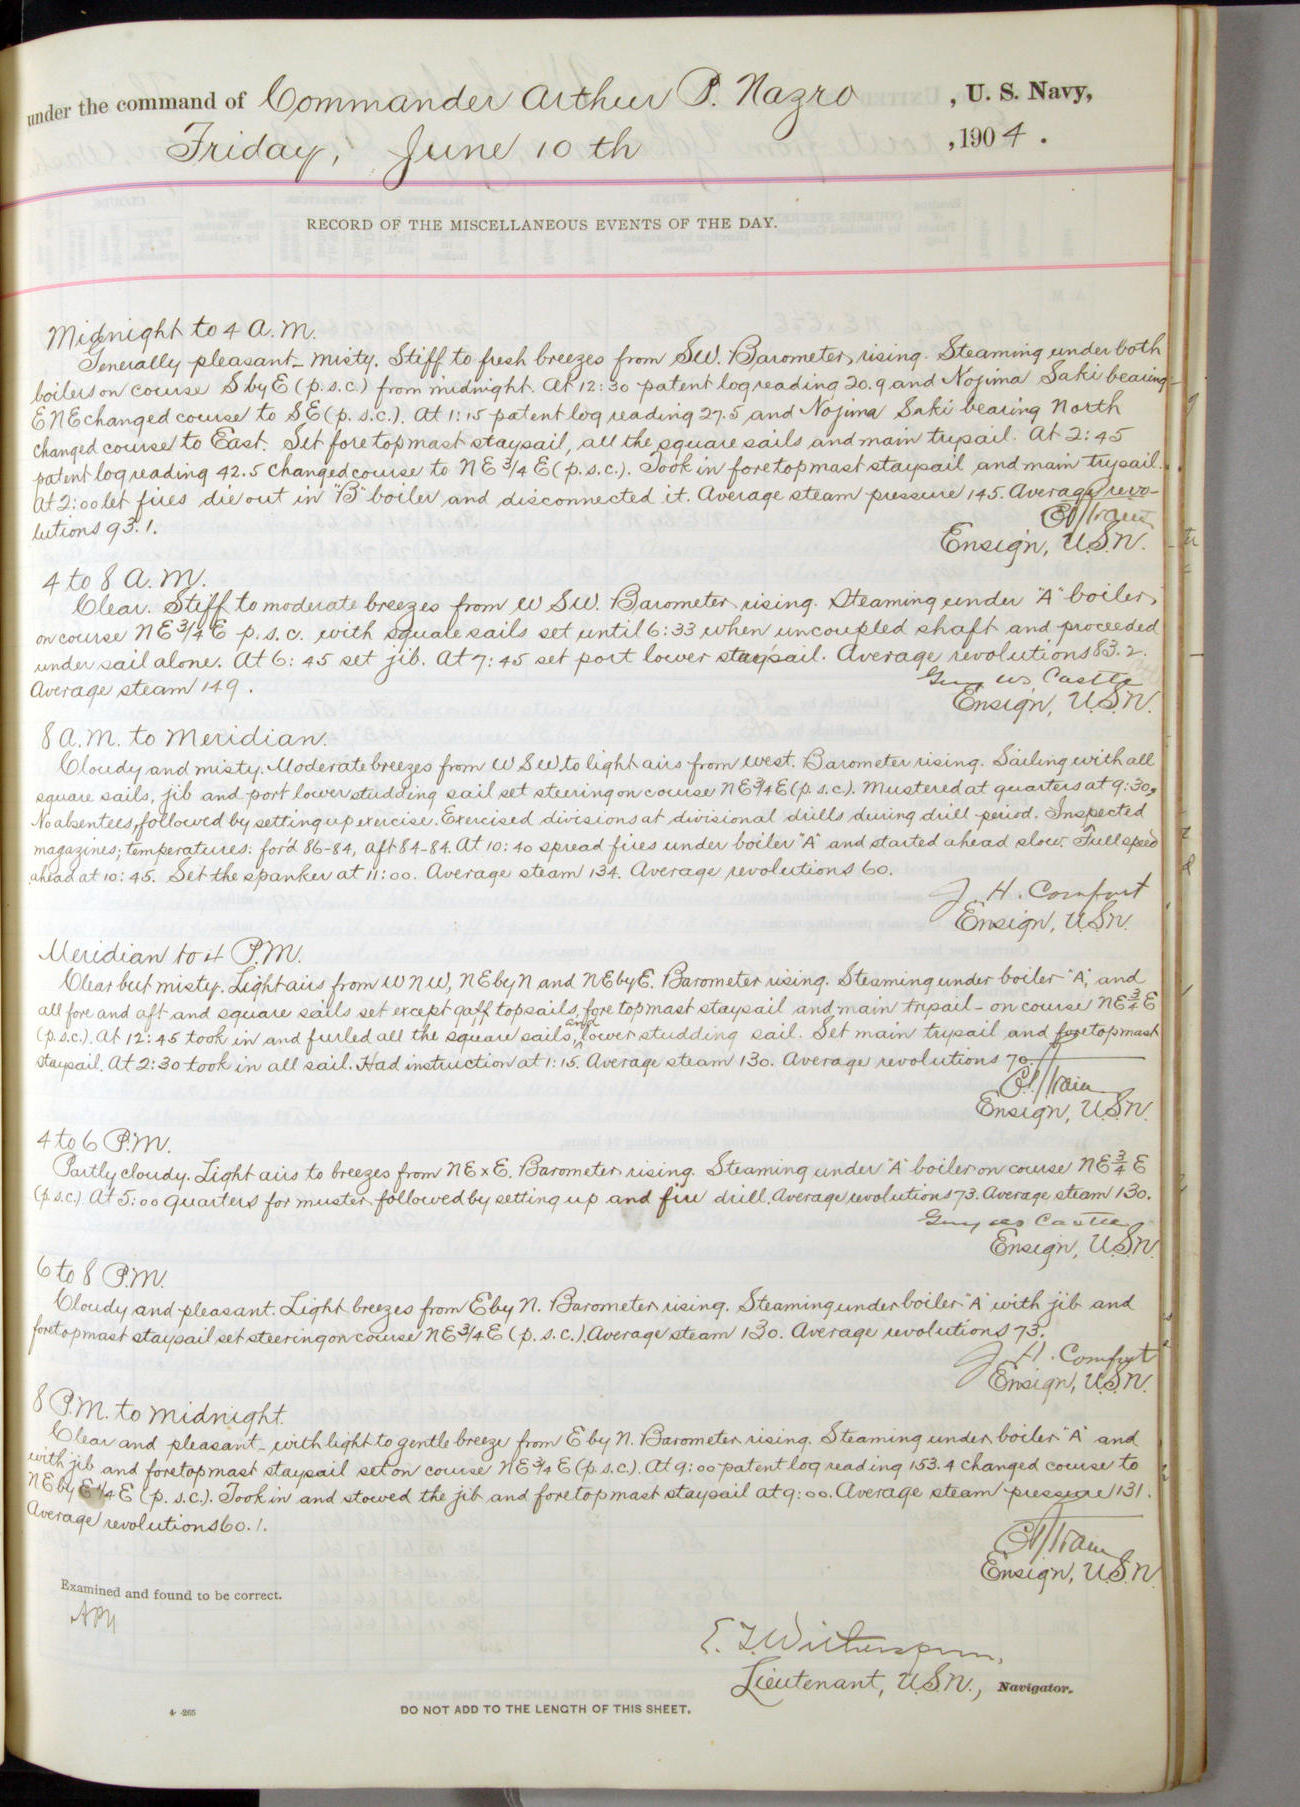 under the command of Commander Arthur P. Nazro, U. S. Navy,
Friday, June 10th, 1904.
RECORD OF THE MISCELLANEOUS EVENTS OF THE DAY.
Midnight to 4 A.M.
Generally pleasant_ misty. Stiff to fresh breezes from SW. Barometer rising. Steaming under both
boilers on course S by E (p.s.c.) from midnight. At 12:30 patent log reading 20.9 and Nojima Saki bearing
ENE changed course to SE (p.s.c.). At 1:15 patent log reading 27.5 and Nojima Saki bearing North
changed course to East. Set foretopmast staysail, all the square sails and main trysail. At 2:45
patent log reading 42.5 changed course to NE 3/4 E (p.s.c.). Took in foretopmast staysail and main trysail.
At 2:00 let fires die out in "B" boiler and disconnected it. Average steam pressure 145. Average revo-
lutions 93.1.
Train
Ensign, U.S.N.
4 to 8 A.M.
Clear. Stiff to moderate breezes from WSW. Barometer rising. Steaming under "A" boiler,
on course NE 3/4 E p.s.c. with square sails set until 6:33 when uncoupled shaft and proceeded
under sail alone. At 6:45 set jib. At 7:45 set port lower staysail. Average revolutions 83.2.
Average steam 149.
Guy W. Castle
Ensign, U.S.N.
8 A.M. to Meridian.
Cloudy and misty. Moderate breezes from WSW to light airs from west. Barometer rising. Sailing with all
square sails, jib and port lower studding sail set steering on course NE 3/4 E (p.s.c.). Mustered at quarters at 9:30,
No absentees, followed by setting up exercise. Exercised divisions at divisional drills during drill period. Inspected
magazines; temperatures: for'd 86-84, aft 84-84. At 10:40 spread fires under boiler "A" and started ahead slow. Full speed
ahead at 10:45. Set the spanker at 11:00. Average steam 134. Average revolutions 60.
J. H. Comfort
Ensign, U.S.N.
Meridian to 4 P.M.
Clear but misty. Light airs from WNW, NE by N and NE by E. Barometer rising. Steaming under boiler "A", and
all fore and aft and square sails set except gaff topsails, fore topmast staysail and main trysail - on course NE 3/4 E
(p.s.c.). At 12:45 took in and furled all the square sails, and lower studding sail. Set main trysail and foretopmast
staysail. At 2:30 took in all sail. Had instruction at 1:15. Average steam 130. Average revolutions 70.
Train
Ensign, U.S.N.
4 to 6 P.M.
Partly cloudy. Light airs to breezes from NE x E. Barometer rising. Steaming under "A" boiler on course NE 3/4 E
(p.s.c.) At 5:00 Quarters for muster followed by setting up and fire drill. Average revolutions 73. Average steam 130.
Guy W. Castle
Ensign, U.S.N.
6 to 8 P.M.
Cloudy and pleasant. Light breezes from E by N. Barometer rising. Steaming under boiler "A" with jib and
foretopmast staysail set steering on course NE 3/4 E (p.s.c.). Average steam 130. Average revolutions 73.
J. H. Comfort
Ensign, U.S.N.
8 P.M. to Midnight.
Clear and pleasant_ with light to gentle breeze from E by N. Barometer rising. Steaming under boiler "A" and
with jib and foretopmast staysail set on course NE 3/4 E (p.s.c.). At 9:00 patent log reading 153.4 changed course to
NE by E 1/4 E (p.s.c.). Took in and stowed the jib and foretopmast staysail at 9:00. Average steam pressure 131.
Average revolutions 60.1.
Train
Ensign, U.S.N.
Examined and found to be correct.
E. T. Witherspoon,
Lieutenant, U.S.N., Navigator.
4-265
DO NOT ADD TO THE LENGTH OF THIS SHEET.